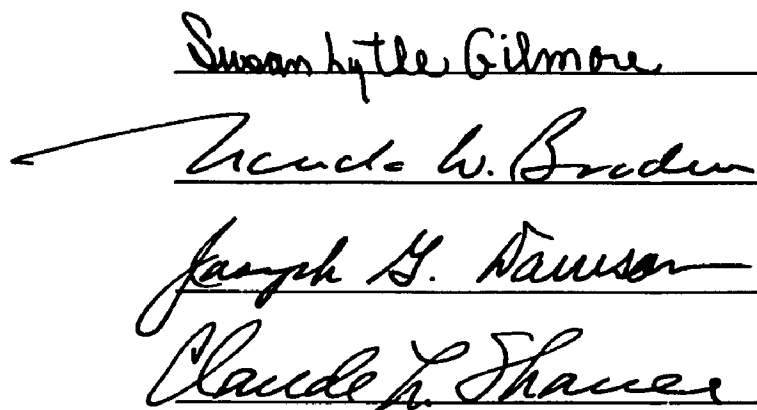 Susan Lytle Gilmore
W. Braden
Joseph G. Dawson
Claude L. Shaver